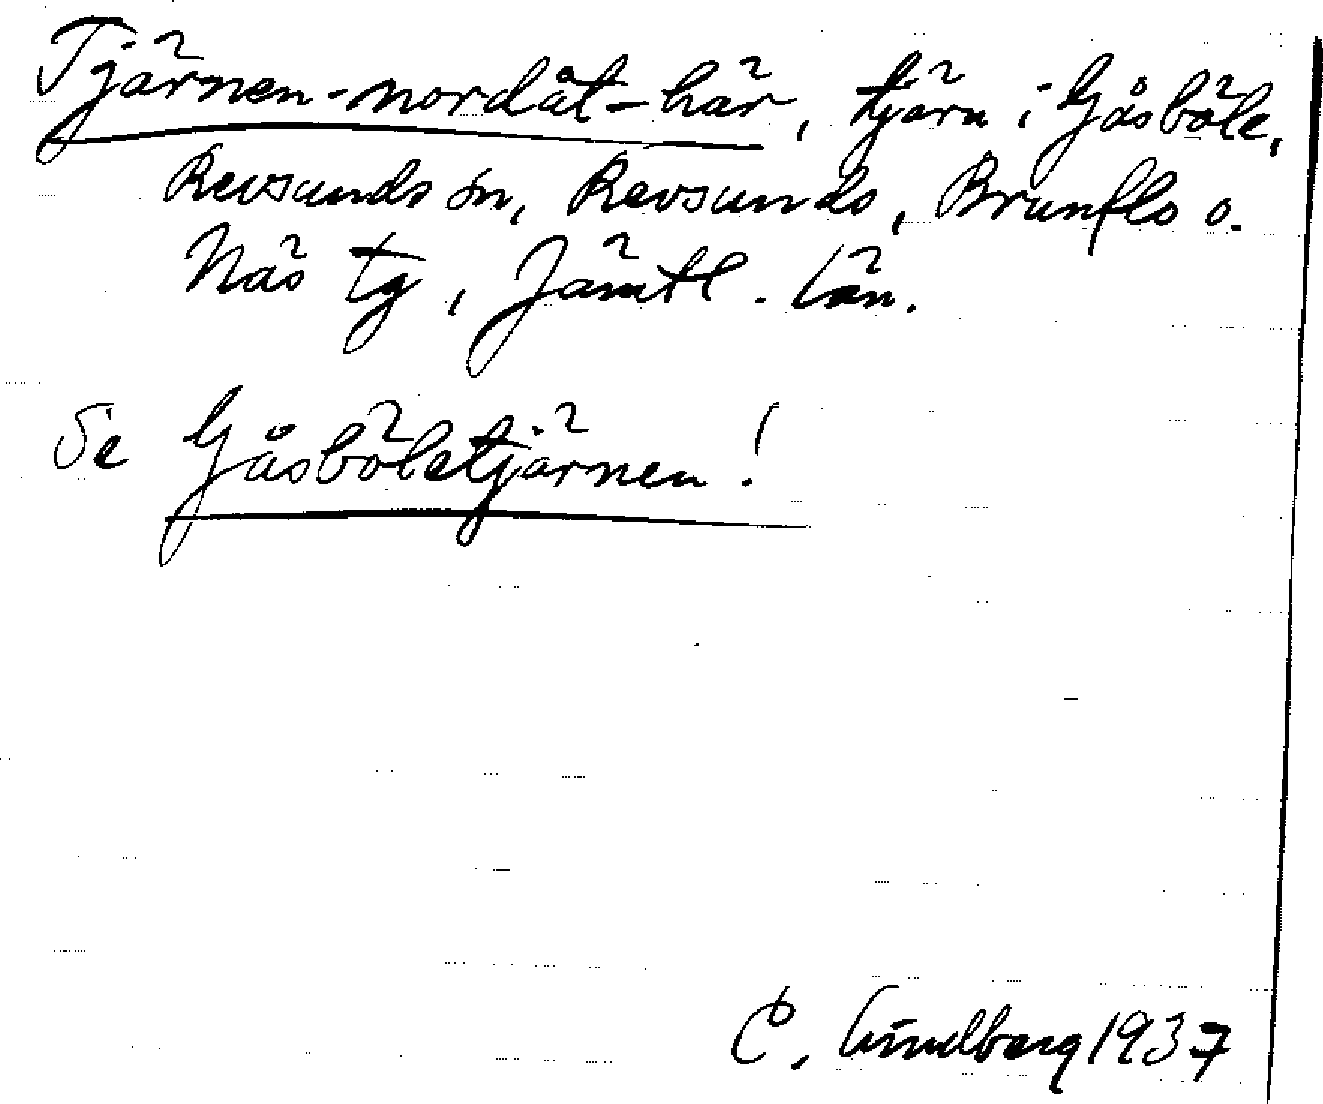 Tjärnen-nordåt-här, tjärn i Gåsböle,
Revsunds sn, Revsunds, Brunflo o.
Näs tg, Jämtl. län.
Se Gåsböletjärnen!
C. Lindberg 1937